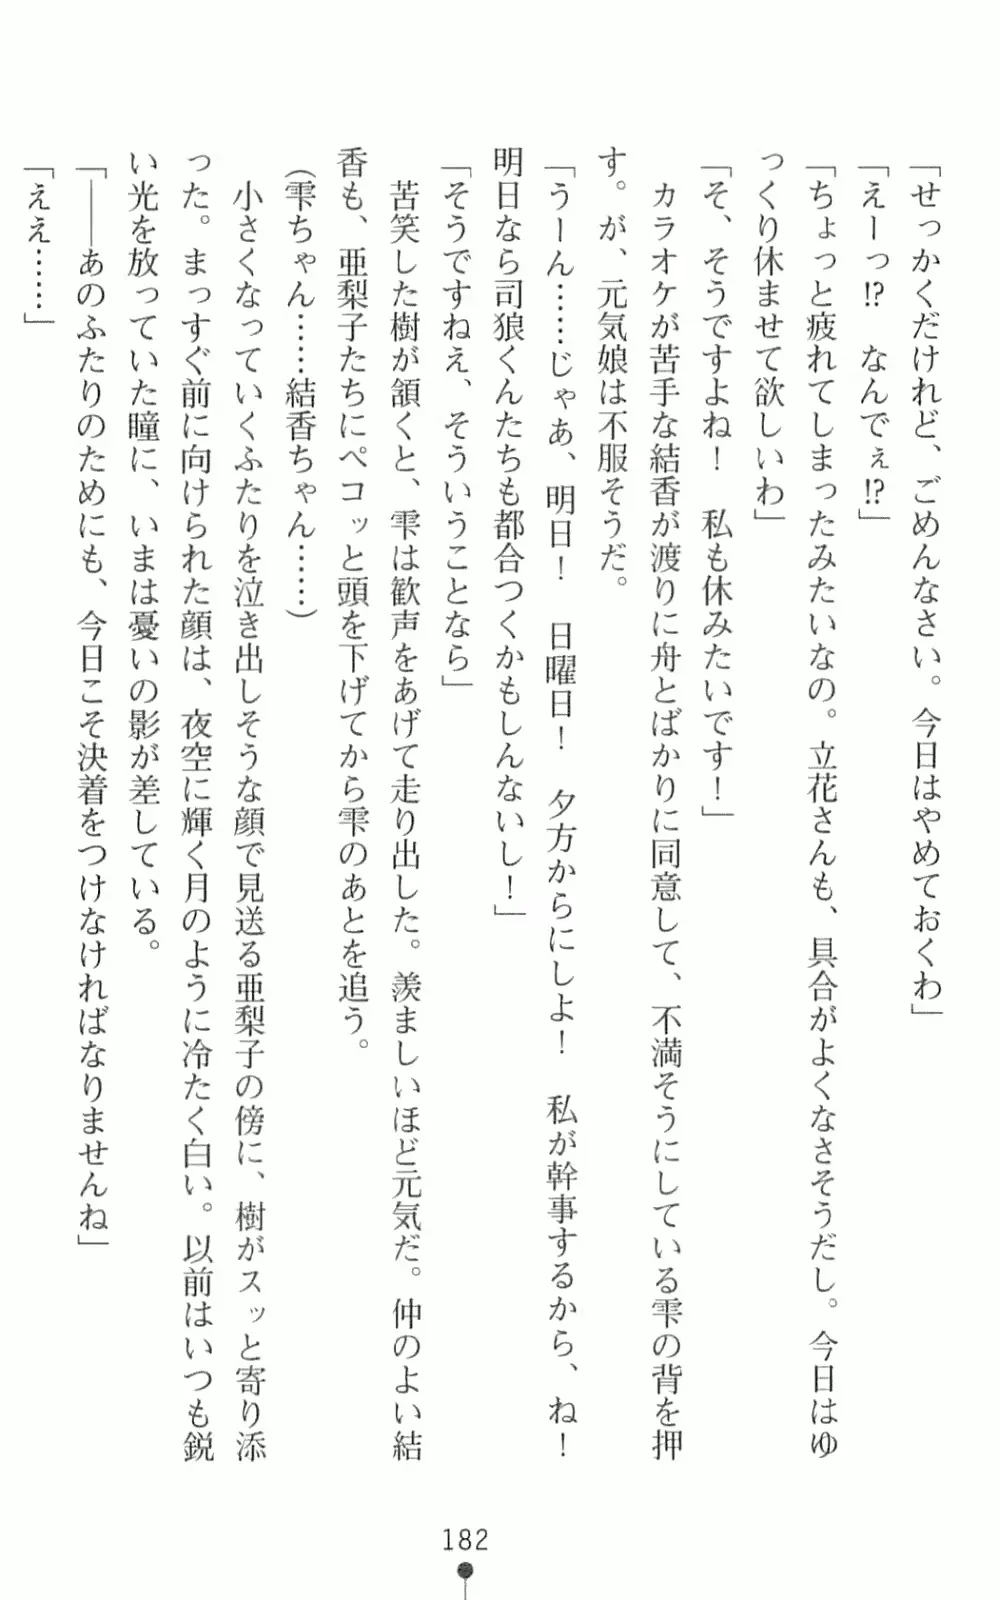 「せっかくだけれど、ごめんなさい。今日はやめておくわ」
「えーっ!?　なんでぇ!?」
「ちょっと疲れてしまったみたいなの。立花さんも、具合がよくなさそうだし。今日はゆ
っくり休ませて欲しいわ」
「そ、そうですよね！　私も休みたいです！」
　カラオケが苦手な結香が渡りに舟とばかりに同意して、不満そうにしている雫の背を押
す。が、元気娘は不服そうだ。
「うーん……じゃぁ、明日！　日曜日！　夕方からにしよ！　私が幹事するから、ね！
明日なら司狼くんたちも都合つくかもしんないし！」
「そうですねえ、そういうことなら」
　苦笑した樹が頷くと、雫は歓声をあげて走り出した。羨ましいほど元気だ。仲のよい結
香も、亜梨子たちにペコッと頭を下げてから雫のあとを追う。
（雫ちゃん……結香ちゃん……）
　小さくなっていくふたりを泣き出しそうな顔で見送る亜梨子の傍に、樹がスッと寄り添
った。まっすぐ前に向けられた顔は、夜空に輝く月のように冷たく白い。以前はいつも鋭
い光を放っていた瞳に、いまは憂いの影が差している。
「――あのふたりのためにも、今日こそ決着をつけなければなりませんね」
「ええ……」
182